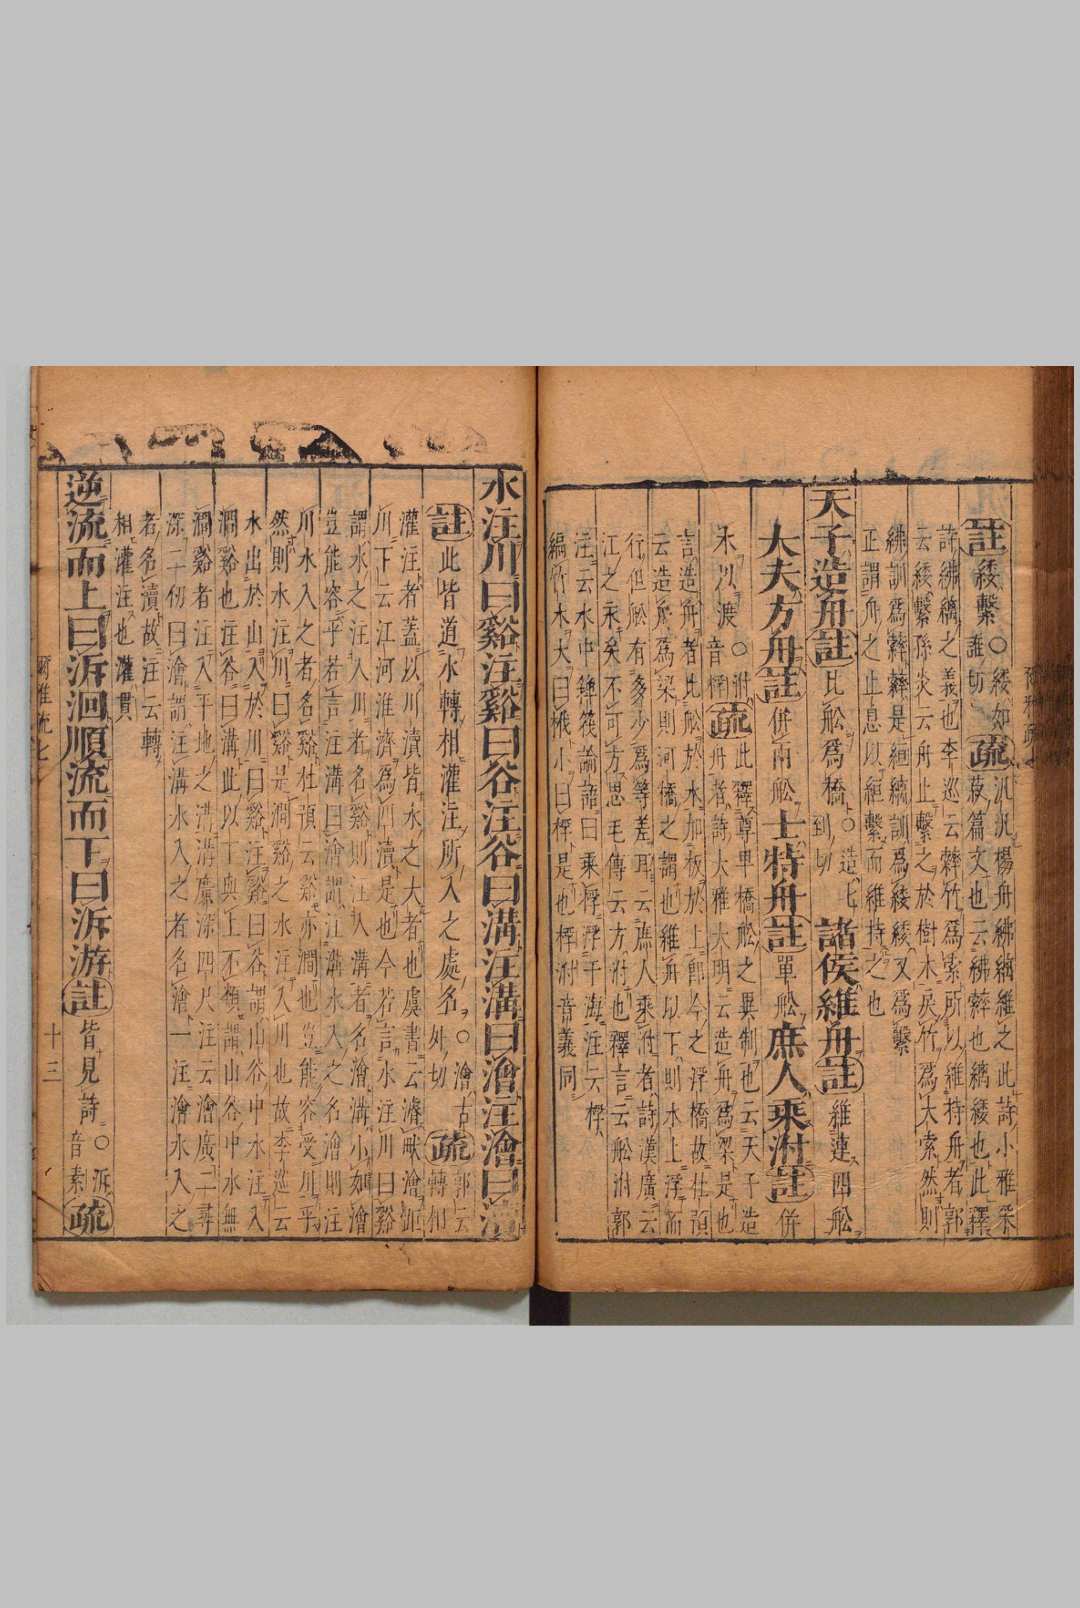 註綏繫○綏如誰切疏汎汎楊舟紼縭維之此詩小雅采
菽篇文也云紼䋫也縭綏也此釋
詩紼縭之義也李巡云䋫竹爲索所以維持舟者郭
云綏繫孫炎云舟止繫之於樹木戾竹爲大索然則
紼訓爲䋫䋫是絙縭訓爲綏綏又爲繫
正謂舟之止息以絙繫而維持之也
天子造舟註比舩爲橋○造七到切諸侯維舟註維連四舩
大夫方舟註併兩舩士特舟註單舩庶人乘泭註併
木以渡○泭音桴疏此釋尊卑橋舩之異制也云天子造
舟者詩大雅大明云造舟爲梁是也
言造舟者比舩於水加板於上卽今之浮橋故杜預
云造舟爲梁則河橋之謂也維舟以下則水上浮而
行但舩有多少爲等差耳云庶人乘泭者詩漢廣云
江之永矣不可方思毛傳云方泭也釋言云舫泭郭
注云水中䉬筏論語曰乘桴浮于海注云桴
編竹木大曰栰小曰桴是也桴泭音義同
水注川曰谿注谿曰谷注谷曰溝注溝曰澮注澮曰瀆
註此皆道水轉相灌注所入之處名○澮古外切疏郭云轉相
灌注者蓋以川瀆皆水之大者也虞書云濬畎澮距
川下云江河淮濟爲四瀆是也今若言水注川曰谿
謂水之注入川者名谿則注入溝者名澮溝小如澮
豈能容乎若言注溝曰澮謂江溝水入之名澮則注
川水入之者名谿杜預云谿亦澗也豈能容受川乎
然則水注川曰谿是澗谿之水注入川也故李巡云
水出於山入於川曰谿注谿曰谷謂山谷中水注入
澗谿也注谷曰溝此以下與上不類謂山谷中水無
澗谿者注入平地之溝溝廣深四尺注云澮廣二尋
深二仞曰澮謂注溝水入之者名澮一注澮水入之
者名瀆故注云轉
相灌注也灌貫
逆流而上曰泝洄順流而下曰泝游註皆見詩○泝音素疏
爾雅疏七
十三